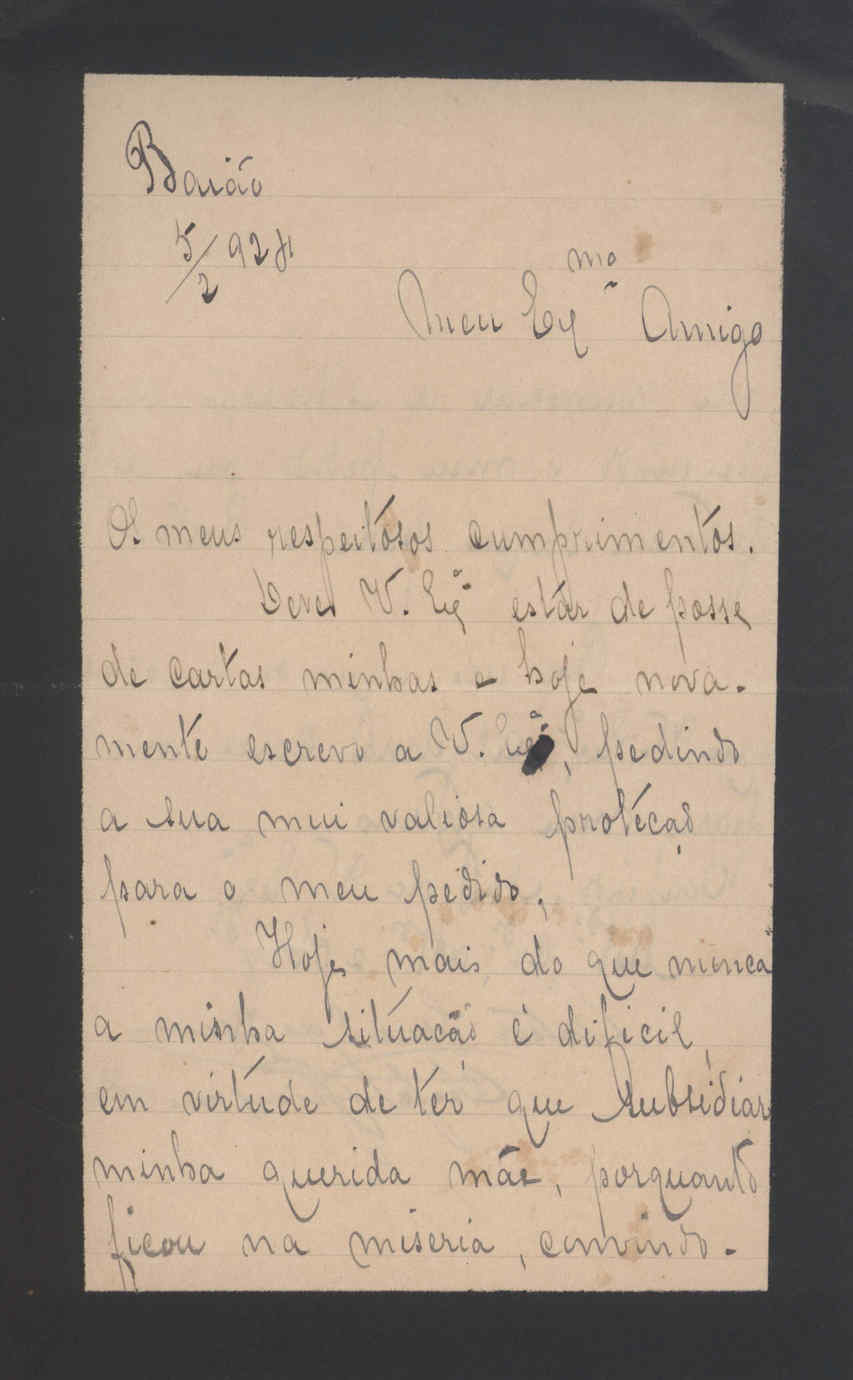 Baião
5/2 924
Meu Exmo Amigo
Os meus respeitosos cumprimentos.
Deve V. Exª estar de posse
de cartas minhas e hoje nova-
mente escrevo a V. Exª, pedindo
a sua mui valiosa proteção
para o meu pedido.
Hoje mais do que nunca
a minha situação é dificil,
em virtude de ter que subsidiar
minha querida mãe, porquanto
ficou na miseria, convindo-